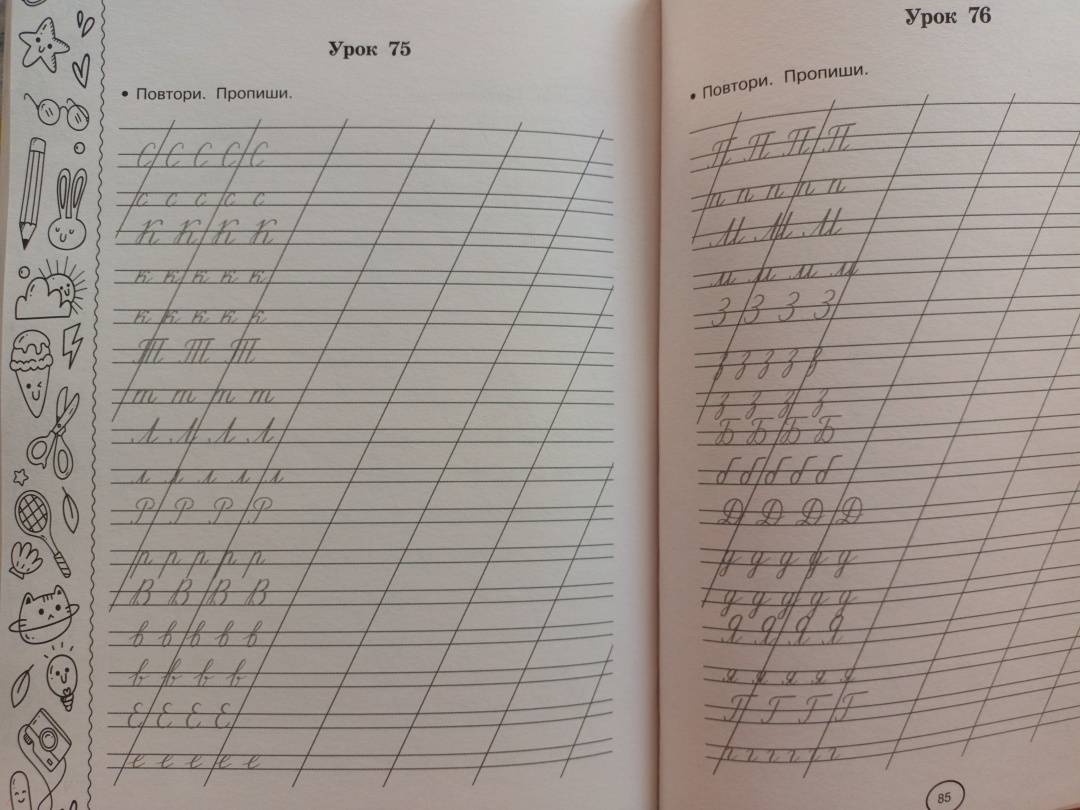 Урок 75
• Повтори. Пропиши.
С С С С С
с с с с с
К К К К
к к к к к
к к к к к
Т Т Т
т т т т
Л Л Л Л
л л л л л
Р Р Р Р
р р р р р
В В В В
в в в в в
в в в в
Е Е Е Е
е е е е е
Урок 76
• Повтори. Пропиши.
П П П П
п п п п п
М М М
м м м м
З З З З
з з з з в
з з з з
Б Б Б Б
б б б б б
Д Д Д Д
д д д д д
д д д д д
Я Я Я Я
я я я я я
П Г Г Г
г г г г г г
85